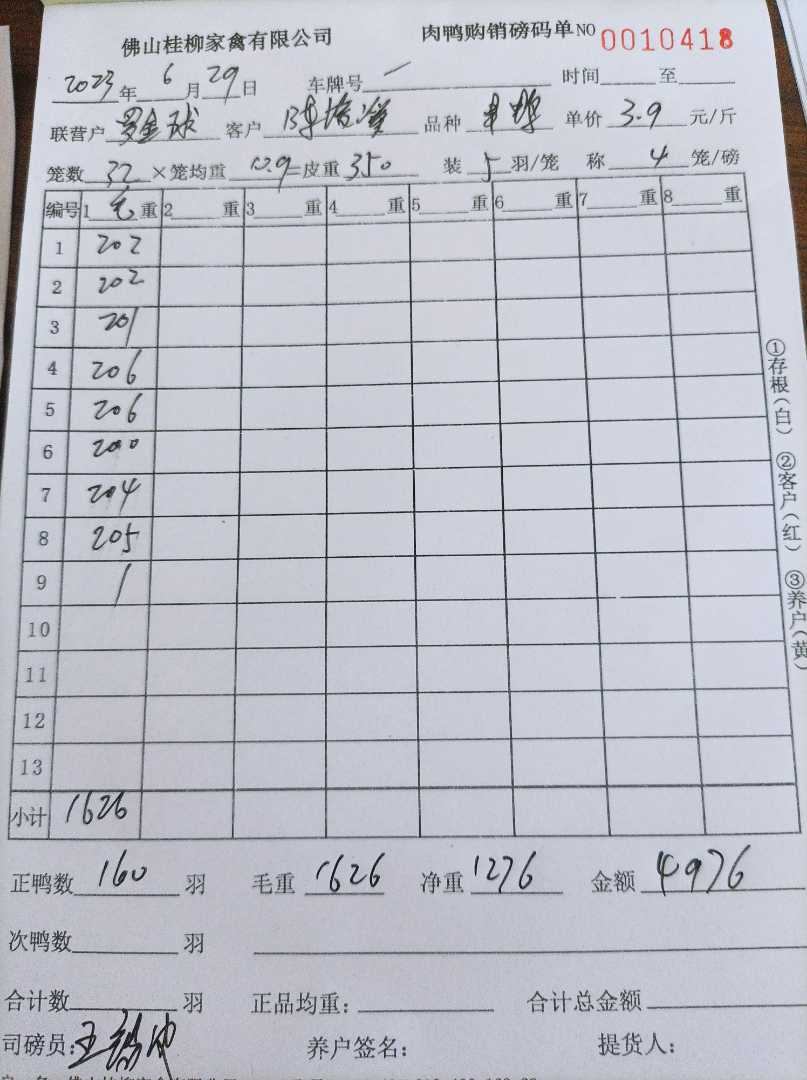 佛山桂柳家禽有限公司 肉鸭购销磅码单NO 0010418
2023年6月29日 车牌号 一 时间 至
联营户 罗金球 客户 陈 品种 单价 3.9 元/斤
笼数 32 ×笼均重 10.9 =皮重 350 装 5 羽/笼 称 4 笼/磅
编号 1 毛 重 2 重 3 重 4 重 5 重 6 重 7 重 8 重
1 202
2 202
3 201
4 206
5 206
6 200
7 204
8 205
9 /
10
11
12
13
小计 1626
正鸭数 160 羽 毛重 1626 净重 1276 金额 4976
次鸭数 羽
合计数 羽 正品均重: 合计总金额
司磅员: 王 养户签名: 提货人:
①存根(白) ②客户(红) ③养户(黄)